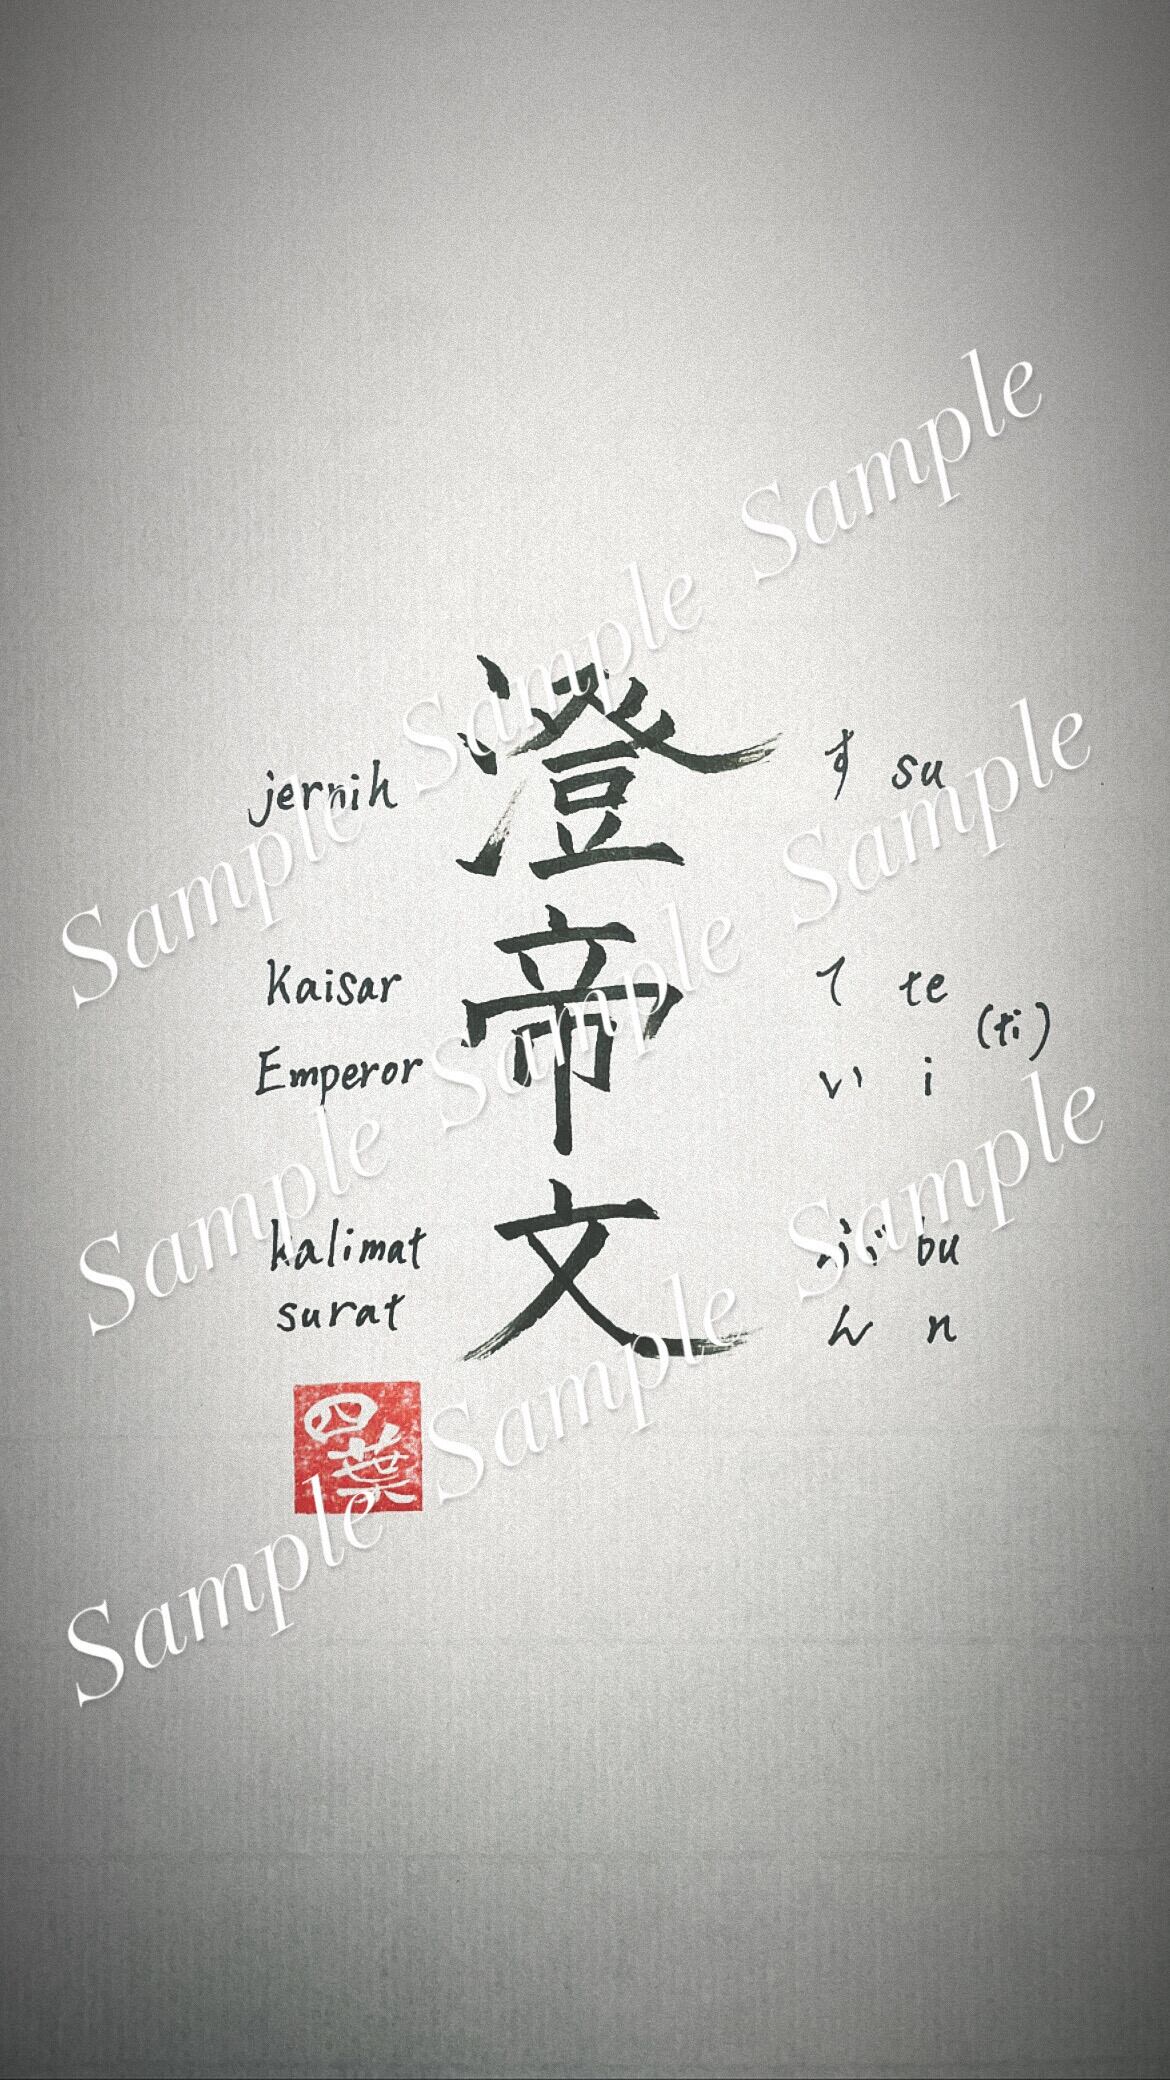 jernih 澄 す su
Kaisar 帝 て te
(ti)
Emperor い i
kalimat 文 ぶ bu
surat ん n
四葉
Sample Sample Sample
Sample Sample Sample
Sample Sample Sample